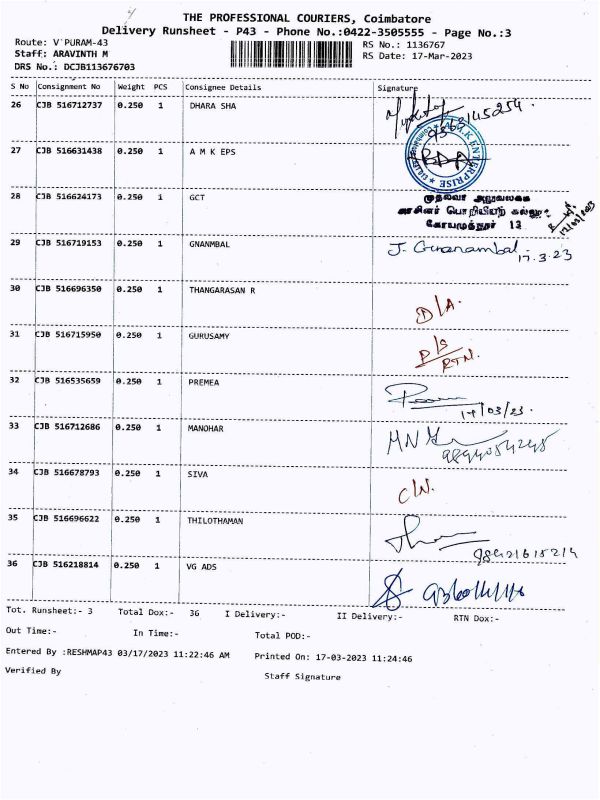 THE PROFESSIONAL COURIERS, Coimbatore
Delivery Runsheet - P43 - Phone No.:0422-3505555 - Page No.:3
Route: V`PURAM-43
Staff: ARAVINTH M
DRS No.: DCJB113676703
RS No.: 1136767
RS Date: 17-Mar-2023
S No Consignment No Weight PCS Consignee Details Signature
26 CJB 516712737 0.250 1 DHARA SHA
27 CJB 516631438 0.250 1 A M K EPS
ENTERPRISE
28 CJB 516624173 0.250 1 GCT
முதல்வர் அலுவலகம்
அரசினர் பொறியியற் கல்லூரி
கோயமுத்தூர் 13
29 CJB 516719153 0.250 1 GNANMBAL J. Gnanambal 17.3.23
30 CJB 516696350 0.250 1 THANGARASAN R D/A.
31 CJB 516715950 0.250 1 GURUSAMY P/S
RTN.
32 CJB 516535659 0.250 1 PREMEA
17/03/23.
33 CJB 516712686 0.250 1 MANOHAR
34 CJB 516678793 0.250 1 SIVA C/N.
35 CJB 516696622 0.250 1 THILOTHAMAN
36 CJB 516218814 0.250 1 VG ADS
Tot. Runsheet:- 3 Total Dox:- 36 I Delivery:- II Delivery:- RTN Dox:-
Out Time:- In Time:- Total POD:-
Entered By :RESHMAP43 03/17/2023 11:22:46 AM Printed On: 17-03-2023 11:24:46
Verified By Staff Signature